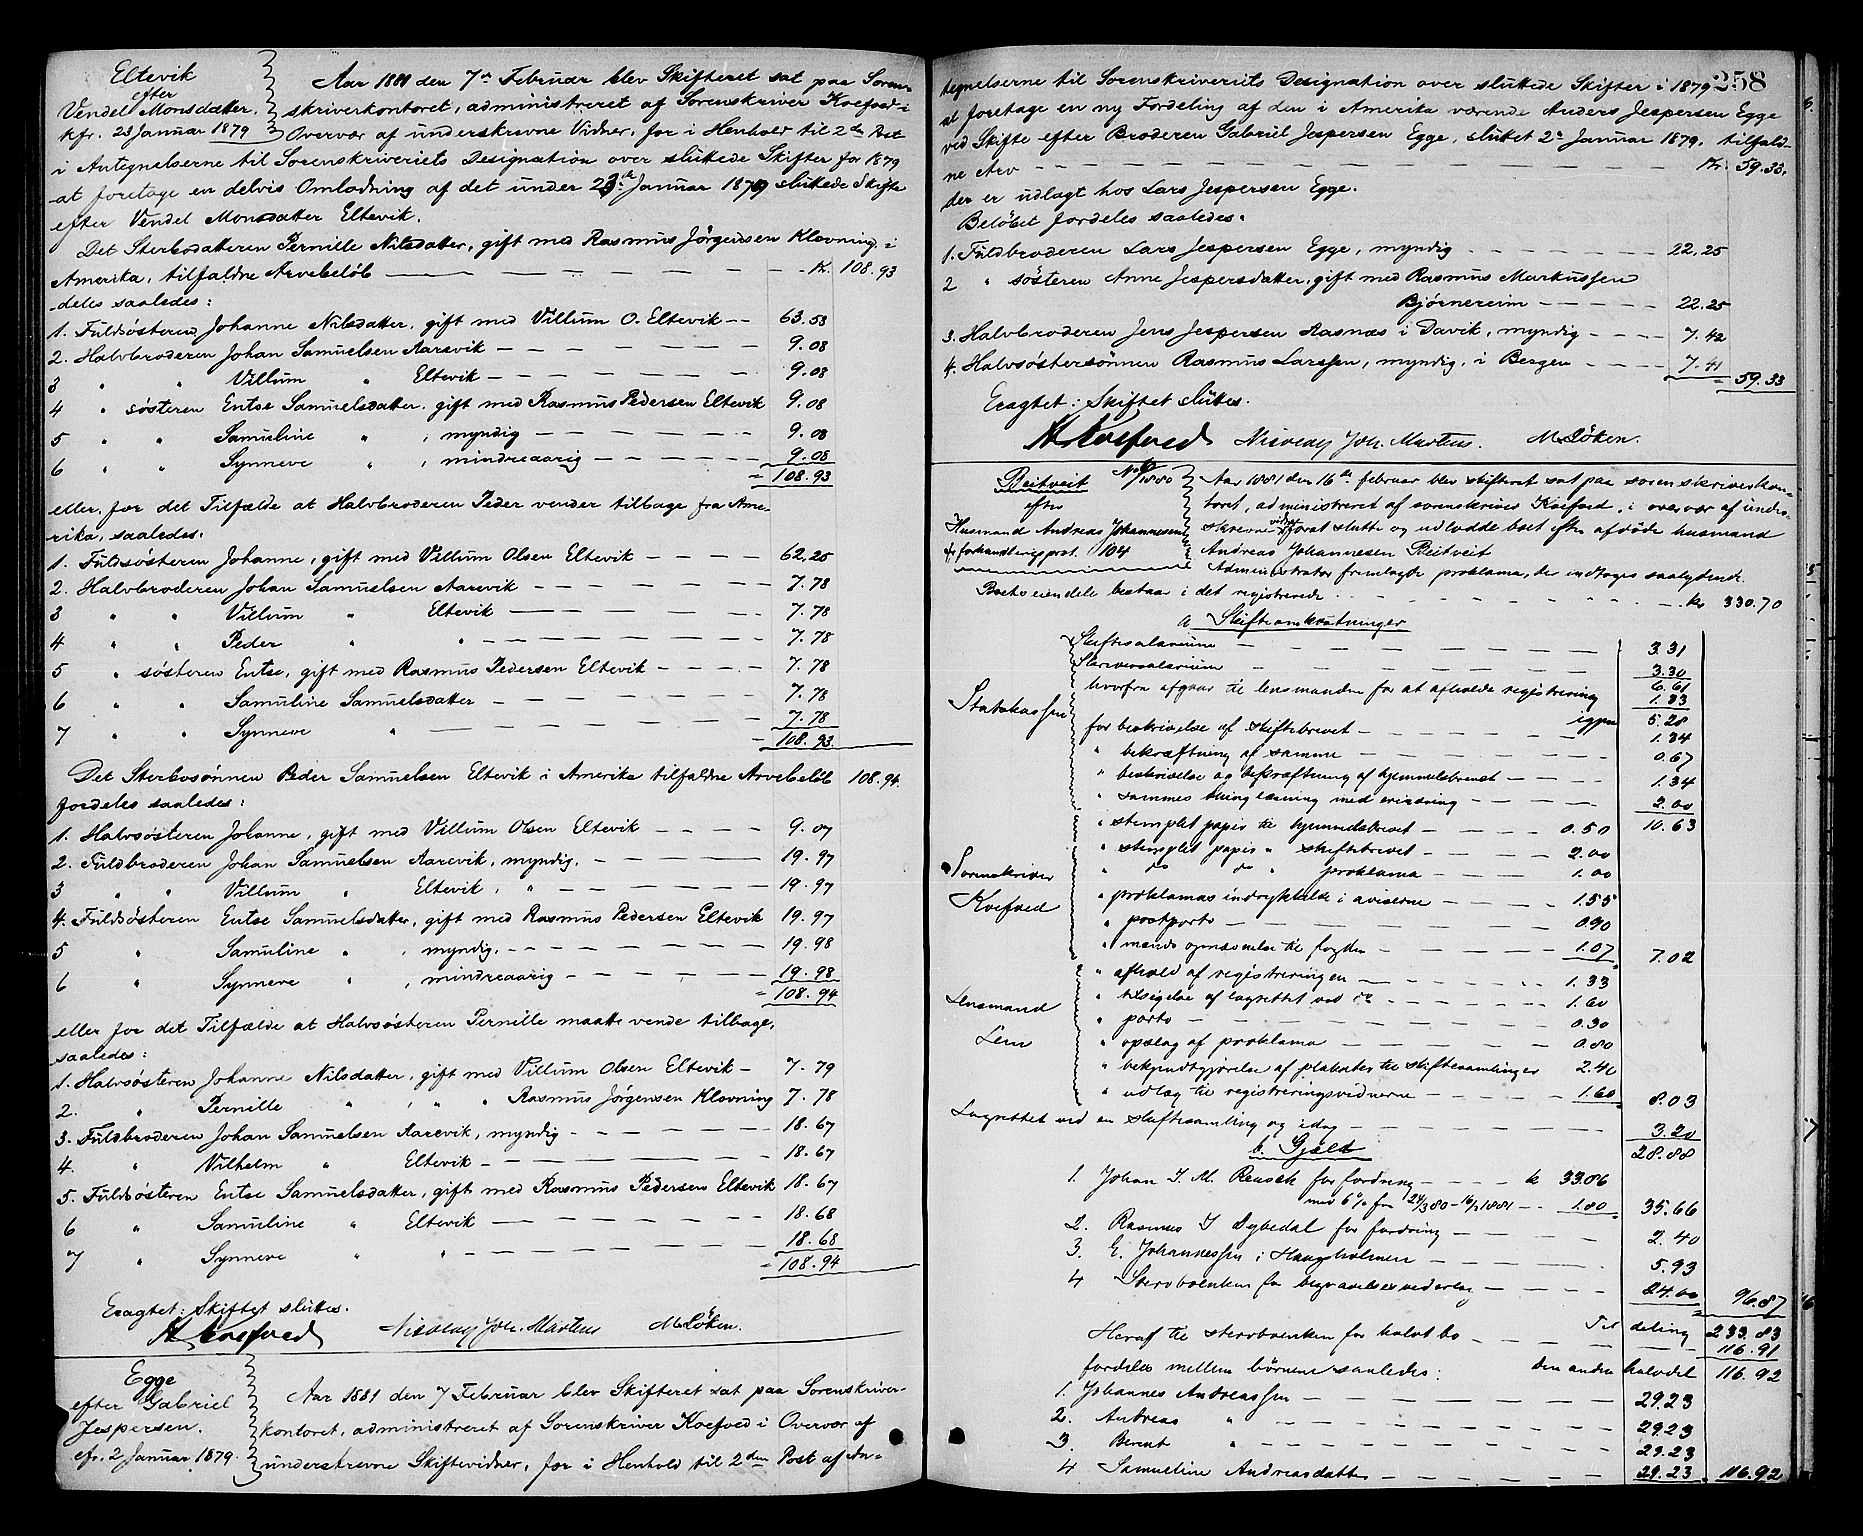 Eltevik
efter
Vendel Monsdatter.
kfr. 23 Januar 1879
Aar 1881 den 7de Februar blev Skifteret sat paa Soren-
skriverkontoret, administreret af Sorenskriver Koefoed i
Overvær af underskrevne Vidner, for i Henhold til 2den Post
i Antegnelserne til Sorenskriveriets Designation over sluttede Skifter for 1879
at foretage en delvis Omlodning af det under 23de Januar 1879 sluttede Skifte
efter Vendel Monsdatter Eltevik.
Det Sterbodatteren Pernille Nilsdatter, gift med Rasmus Jörgensen Klovning i
Amerika, tilfaldne Arvebeløb — — — Kr. 108.93
deles saaledes:
1. Fuldsösteren Johanne Nilsdatter, gift med Villum O. Eltevik — 63.53
2. Halvbroderen Johan Samuelsen Aarevik — — — 9.08
3 " " Villum " Eltevik — — — 9.08
4 " søsteren Entse Samuelsdatter, gift med Rasmus Pedersen Eltevik 9.08
5 " " Samuline " , myndig — — — 9.08
6 " " Synneve " , mindreaarig — — — 9.08
= 108.93
eller, for det Tilfælde at Halvbroderen Peder vender tilbage fra Ame-
rika, saaledes:
1. Fuldsösteren Johanne, gift med Villum Olsen Eltevik — — — 62.25
2. Halvbroderen Johan Samuelsen Aarevik — — 7.78
3 " " Villum " Eltevik — — — 7.78
4 " " Peder " " — — — 7.78
5 " søsteren Entse, gift med Rasmus Pedersen Eltevik — — — 7.78
6 " " Samuline Samuelsdatter — — 7.78
7 " " Synneve " — — 7.78
= 108.93
Det Sterbosönnen Peder Samuelsen Eltevik i Amerika tilfaldne Arvebeløb 108.94.
fordeles saaledes:
1. Halvsösteren Johanne, gift med Villum Olsen Eltevik — — — 9.07
2. Fuldbroderen Johan Samuelsen Aarevik, myndig. — — — 19.97
3 " " Villum " Eltevik, " — — — 19.97
4. Fuldsösteren Entse Samuelsdatter, gift med Rasmus Pedersen Eltevik 19.97
5 " Samuline " , myndig. — — — 19.98
6 " Synneve " , mindreaarig — — — 19.98
= 108.94
eller for det Tilfælde at Halvsösteren Pernille maatte vende tilbage,
saaledes:
1. Halvsösteren Johanne Nilsdatter, gift med Villum Olsen Eltevik — 7.79
2. " Pernille " , " " Rasmus Jörgensen Klovning 7.78
3. Fuldbroderen Johan Samuelsen Aarevik, myndig — — — 18.67
4. " Vilhelm " Eltevik — — — 18.67
5. Fuldsösteren Entse Samuelsdatter, gift med Rasmus Pedersen Eltevik 18.67
6 " Samuline " Eltevik — — — 18.68
7 " Synneve " " — — — 18.68
= 108.94
Eragtet: Skiftet sluttes.
H Koefoed Nicolay Joh. Martens M Löken.
Egge
efter Gabriel
Jespersen.
cfr. 2 Januar 1879.
Aar 1881 den 7 Februar blev Skifteret sat paa Sorenskriver-
kontoret, administreret af Sorenskriver Koefoed i Overvær af
underskrevne Skiftevidner, for i Henhold til 2den Post af An-
258
tegnelserne til Sorenskriveriets Designation over sluttede Skifter i 1879
at foretage en ny Fordeling af den i Amerika værende Anders Jespersen Egge
ved Skifte efter Broderen Gabriel Jespersen Egge, sluttet 2de Januar 1879, tilfald-
ne Arv — — — Kr. 59.33.
der er udlagt hos Lars Jespersen Egge.
Belöbet fordeles saaledes:
1. Fuldbroderen Lars Jespersen Egge, myndig — — — 22.25
2 " søsteren Anne Jespersdatter, gift med Rasmus Markussen
Bjørnereim — — — 22.25
3. Halvbroderen Jens Jespersen Aasnæs i Davik, myndig — — — 7.42
4. Halvsöstersönnen Rasmus Larssen, myndig, i Bergen — — — 7.41
= 59.33
Eragtet: Skiftet sluttes.
H Koefoed Nicolay Joh. Martens. M Löken.
Reitveit
efter
Husmand Andreas Johannesen
forhandlingsprot. 104
Aar 1881 den 16de februar blev skifteret sat paa sorenskriverkon-
toret, administreret af sorenskriver Koefoed, i overvær af under-
skrevne vidner for at slutte og udlodde boet efter afdöde husmand
Andreas Johannesen Reitveit
Administrator fremlagde proklama, der indtages saalydende.
Boets eiendele bestaar i det registrerede — — — kr 330.70
a Skifteomkostninger
Statskassen
Skiftesalarium — — — 3.31
Skriversalarium — — — 3.30
6.61
hvorfra afgaar til lensmanden for at afholde registrering 1.33
igjen 5.28
for beskrivelse af skiftebrevet — — — 1.34
" bekræftning af samme — — — 0.67
" beskrivelse og bekræftning af hjemmelsbrevet — — — 1.34
" sammes thinglæsning med erindring — — — 2.00
10.63
Sorenskriver
Koefoed
" stemplet papir til hjemmelsbrevet — — — 0.50
" stemplet papir " skiftebrevet — — — 2.00
" do do " proklama — — — 1.00
" proklamas indrykkelse i aviserne — — — 1.55
" postporto — — — 0.90
" mands opnævnelse til fogden — — — 1.07
7.02
Lensmand
Lem
" afhold af registreringen — — — 1.33
" tilsigelse af lagrettet ved do — — — 1.60
" porto — — — 0.30
" opslag af proklama — — — 0.80
" bekjendtgjørelse af plakater til skiftesamlinger 2.40
" udlæg til registreringsvidnerne — — — 1.60
8.03
Lagrettet ved en skiftesamling og idag — — — 3.20
28.88
b. Gjæld
1. Johan I. M. Reusch for fordring — — — kr 33.86
med 6% fra 24/3 80 – 16/2 1881 — 1.80 35.66
2. Rasmus I Dybedal for fordring — — — 2.40
3. E. Johannessen i Haugholmen — — — 5.93
4 Sterboenken for begravelsesvederlag — — — 24.00
96.87
Til deling 233.83
Heraf til sterboenken for halvt bo — — — 116.91
fordeles mellem børnene saaledes: den anden halvdel 116.92
1. Johannes Andreassen — — — 29.23
2. Andreas " — — — 29.23
3. Berent " — — — 29.23
4 Samueline Andreasdatter — — — 29.23 116.92